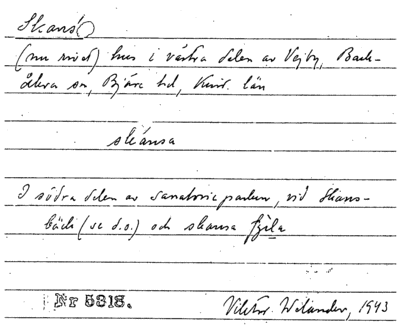 Skansö
(nu rivet) hus i västra delen av Vejby, Barkåkra sn, Bjäre hd, Krist. län
skånsa
I södra delen av sanatorieparken, vid Skansbäck (se d.o.) och skansa
Nr 5818.
Viktor Wilander, 1943